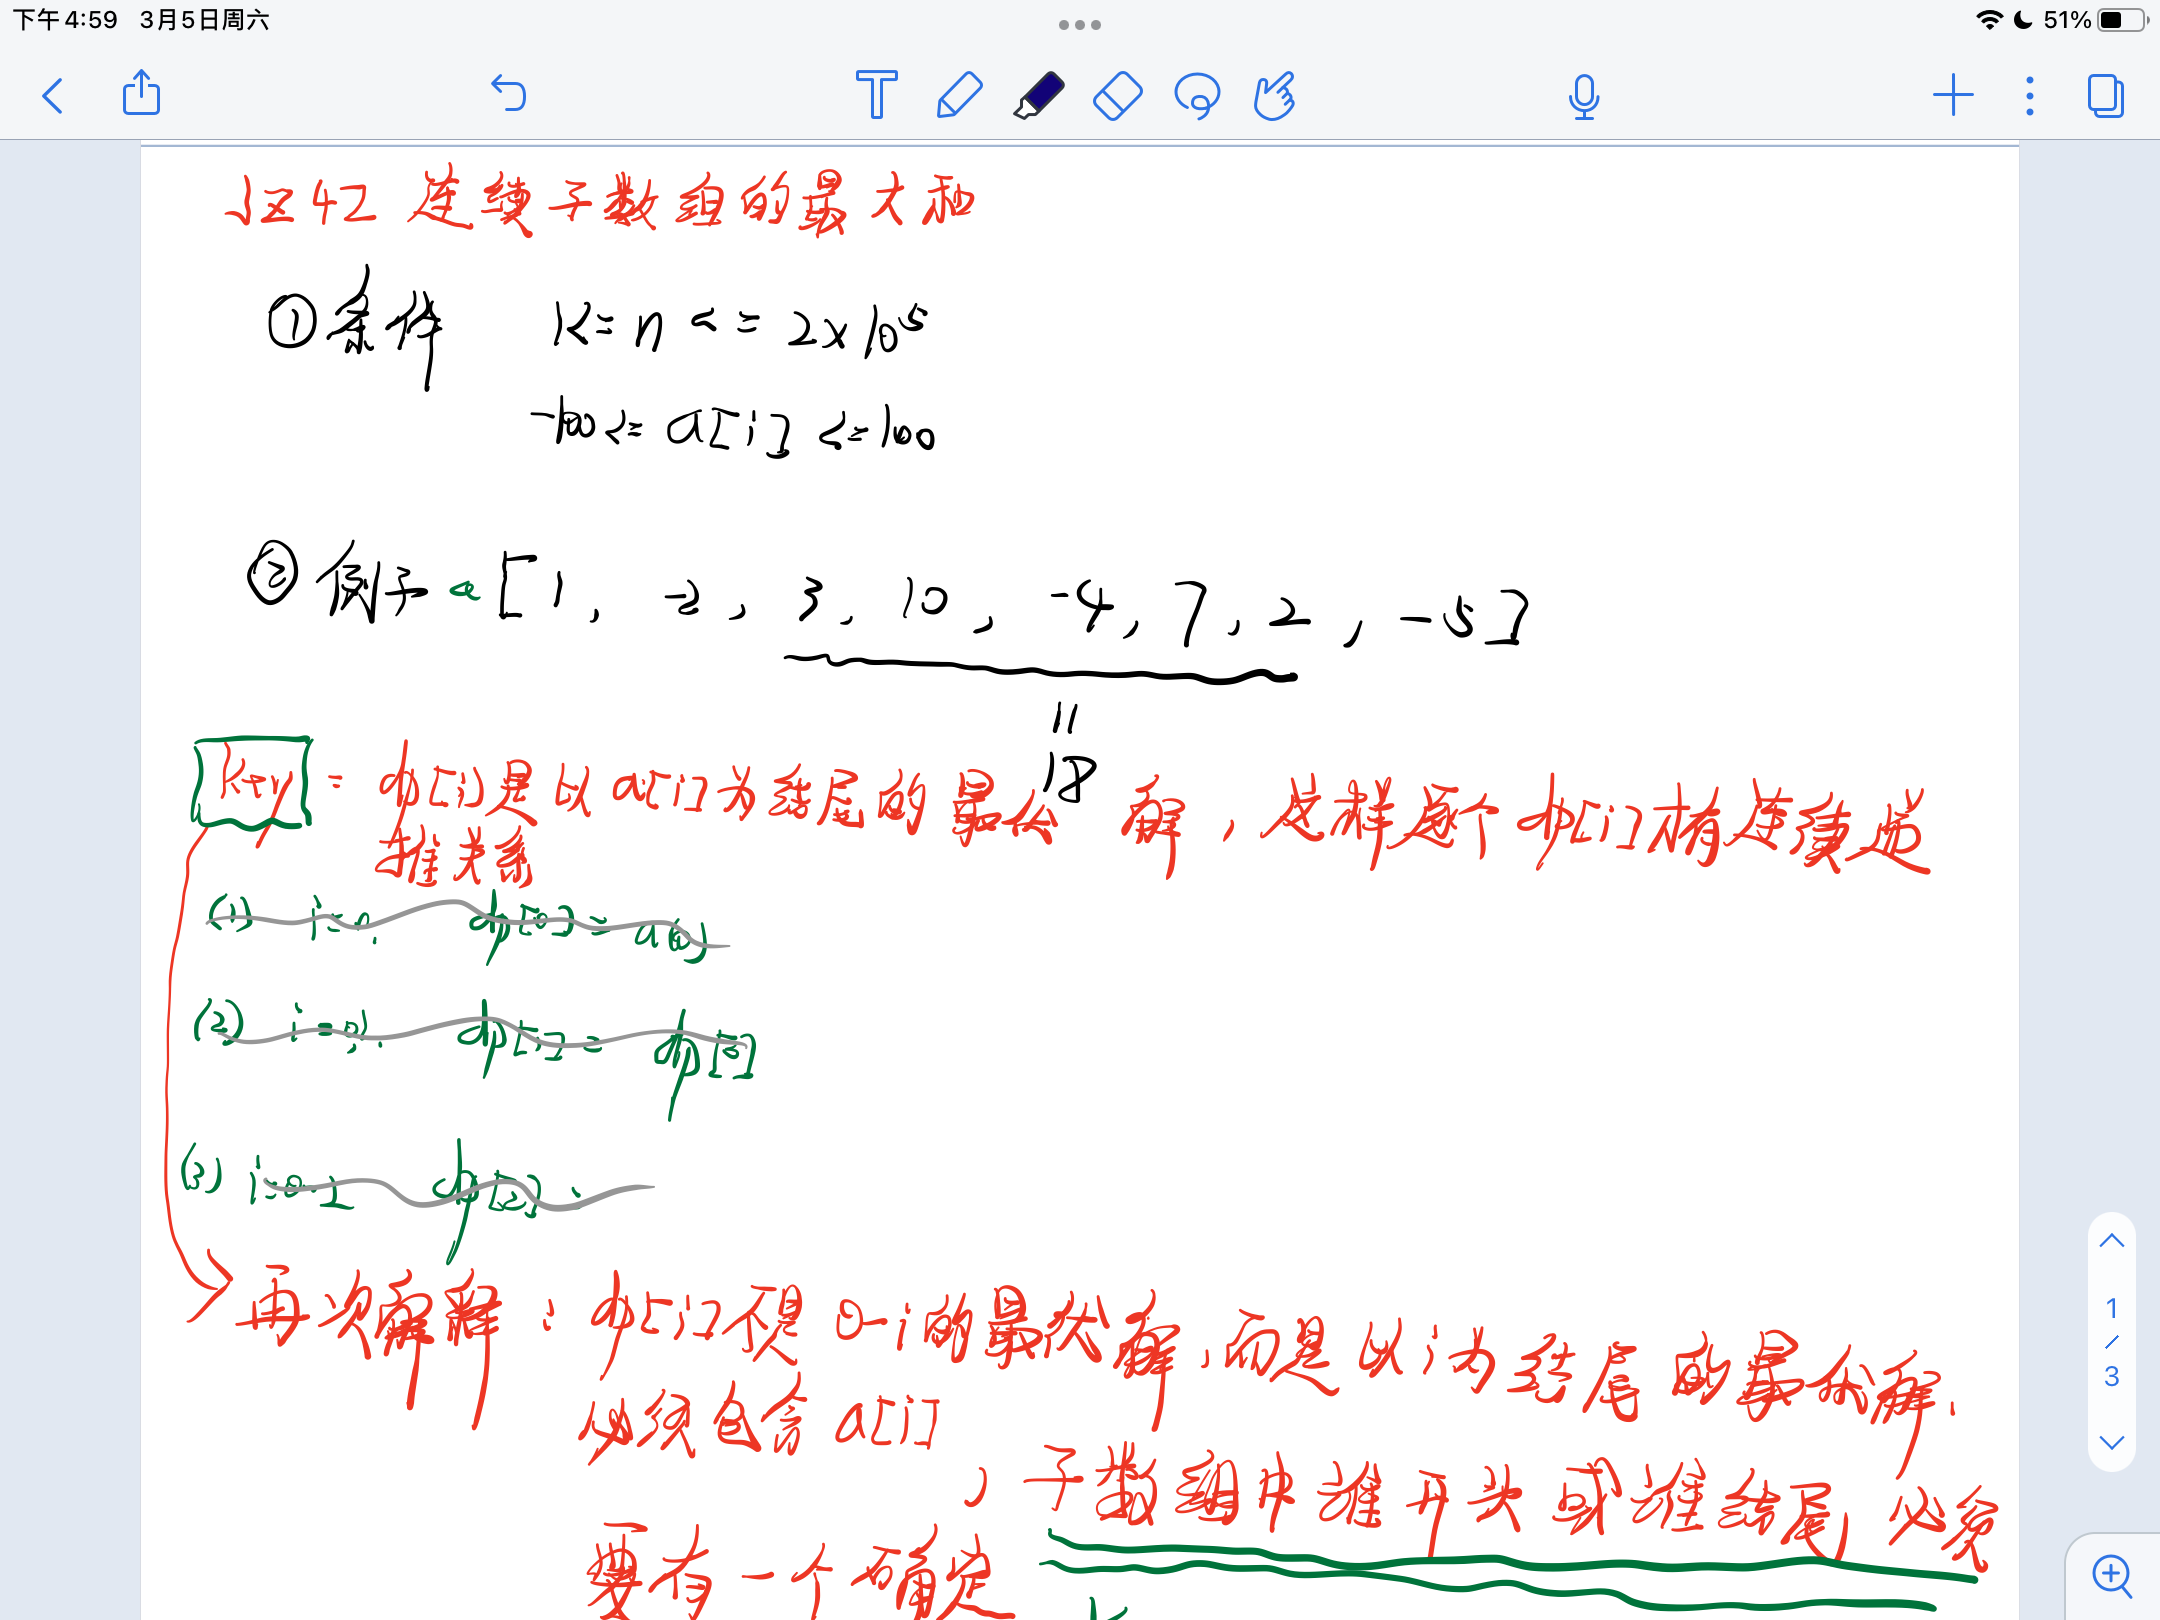 下午4:59 3月5日周六
51%
T
JZ42 连续子数组的最大和
① 条件 1<=n<=2×10⁵
-100<=a[i]<=100
② 例子 a[1, -2, 3, 10, -4, 7, 2, -5]
||
18
key = dp[i]是以a[i]为结尾的最优解，这样逐个dp[i]才有连续递
推关系
(1) dp[0]=a[0]
(2) dp[1]= dp[0]
(3) dp[2]
再次解释：dp[i]不是0-i的最优解，而是以i为结尾的最优解，
必须包含a[i]
，子数组中谁开头或谁结尾必须
要有一个确定
1
/
3